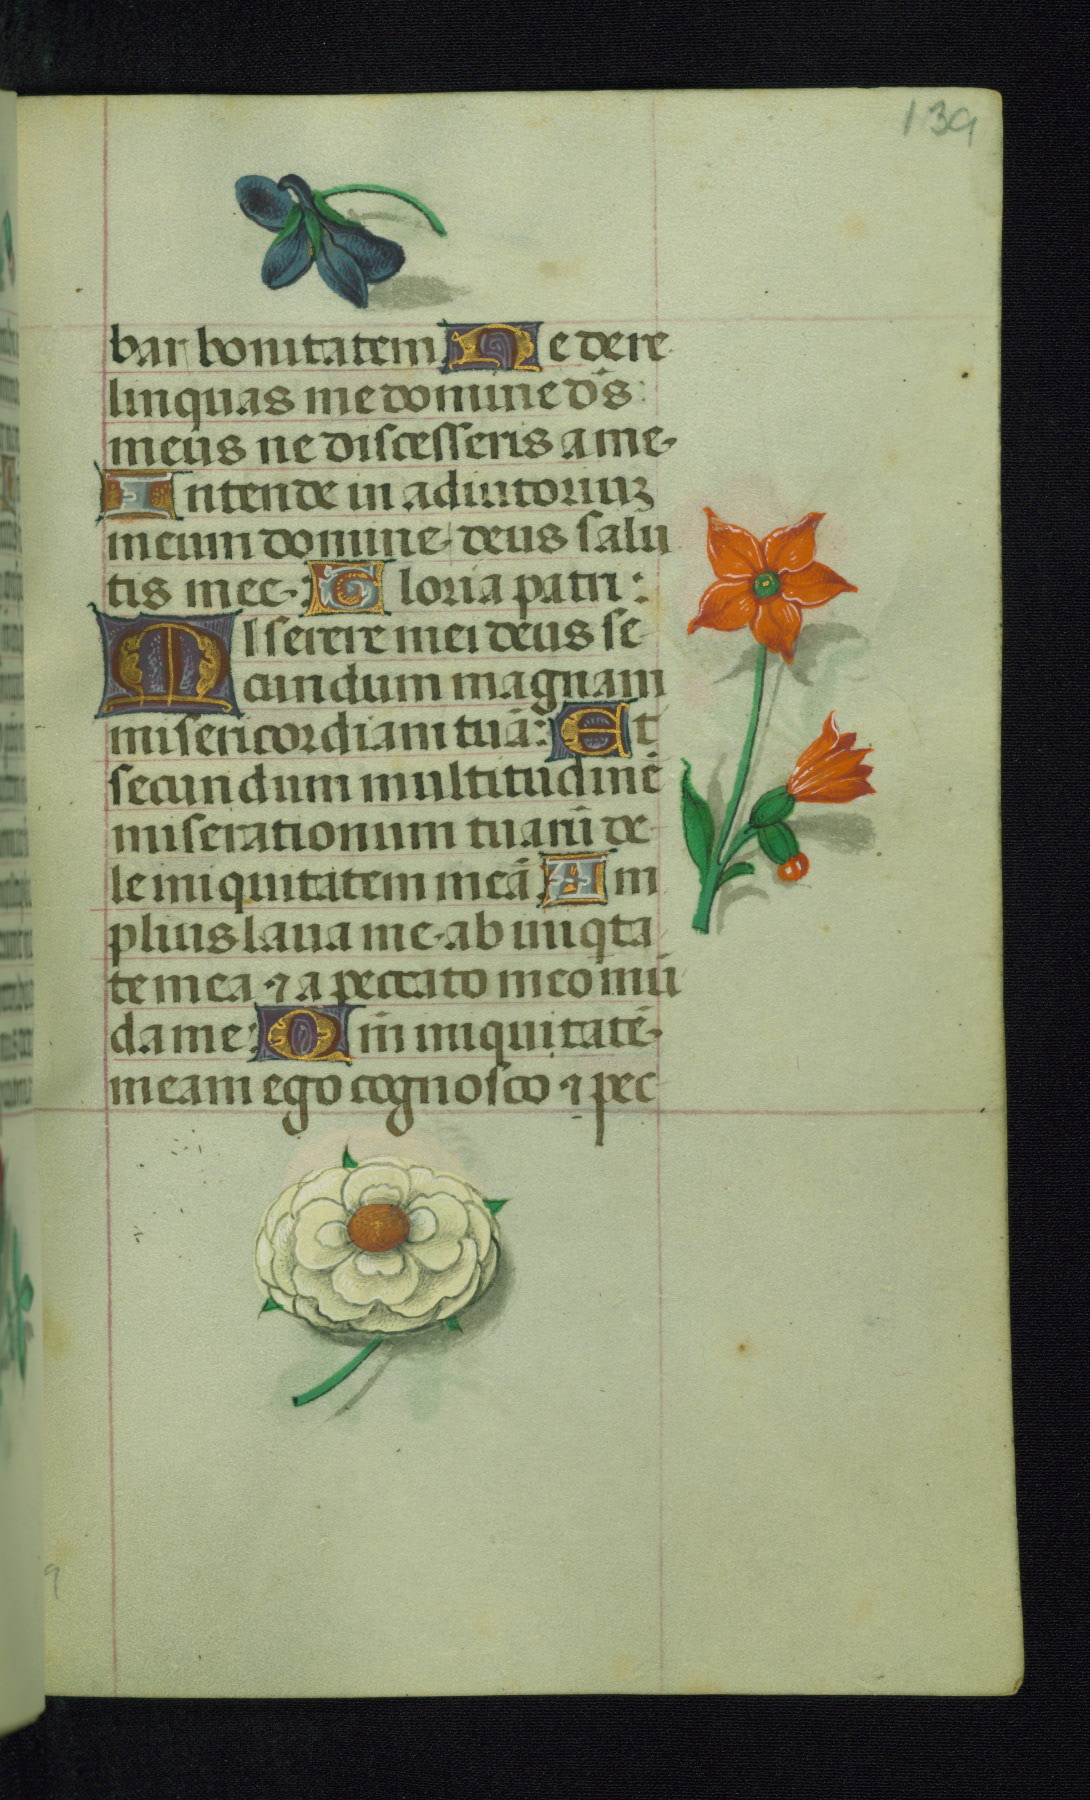 139
bar bonitatem. Ne dere
linquas me domine ds̄
meus ne discesseris a me.
Intende in adiutoriuꝫ
meum domine. deus salu
tis mee. Gloria patri:
MIserere mei deus se
cundum magnam
misericordiam tuā: Et
secundum multitudinē
miserationum tuarū de
le iniquitatem meā. Am
plius laua me. ab iniqta
te mea ⁊ a peccato meo mū
da me: Om̄ iniquitatē
meam ego cognosco ⁊ pec